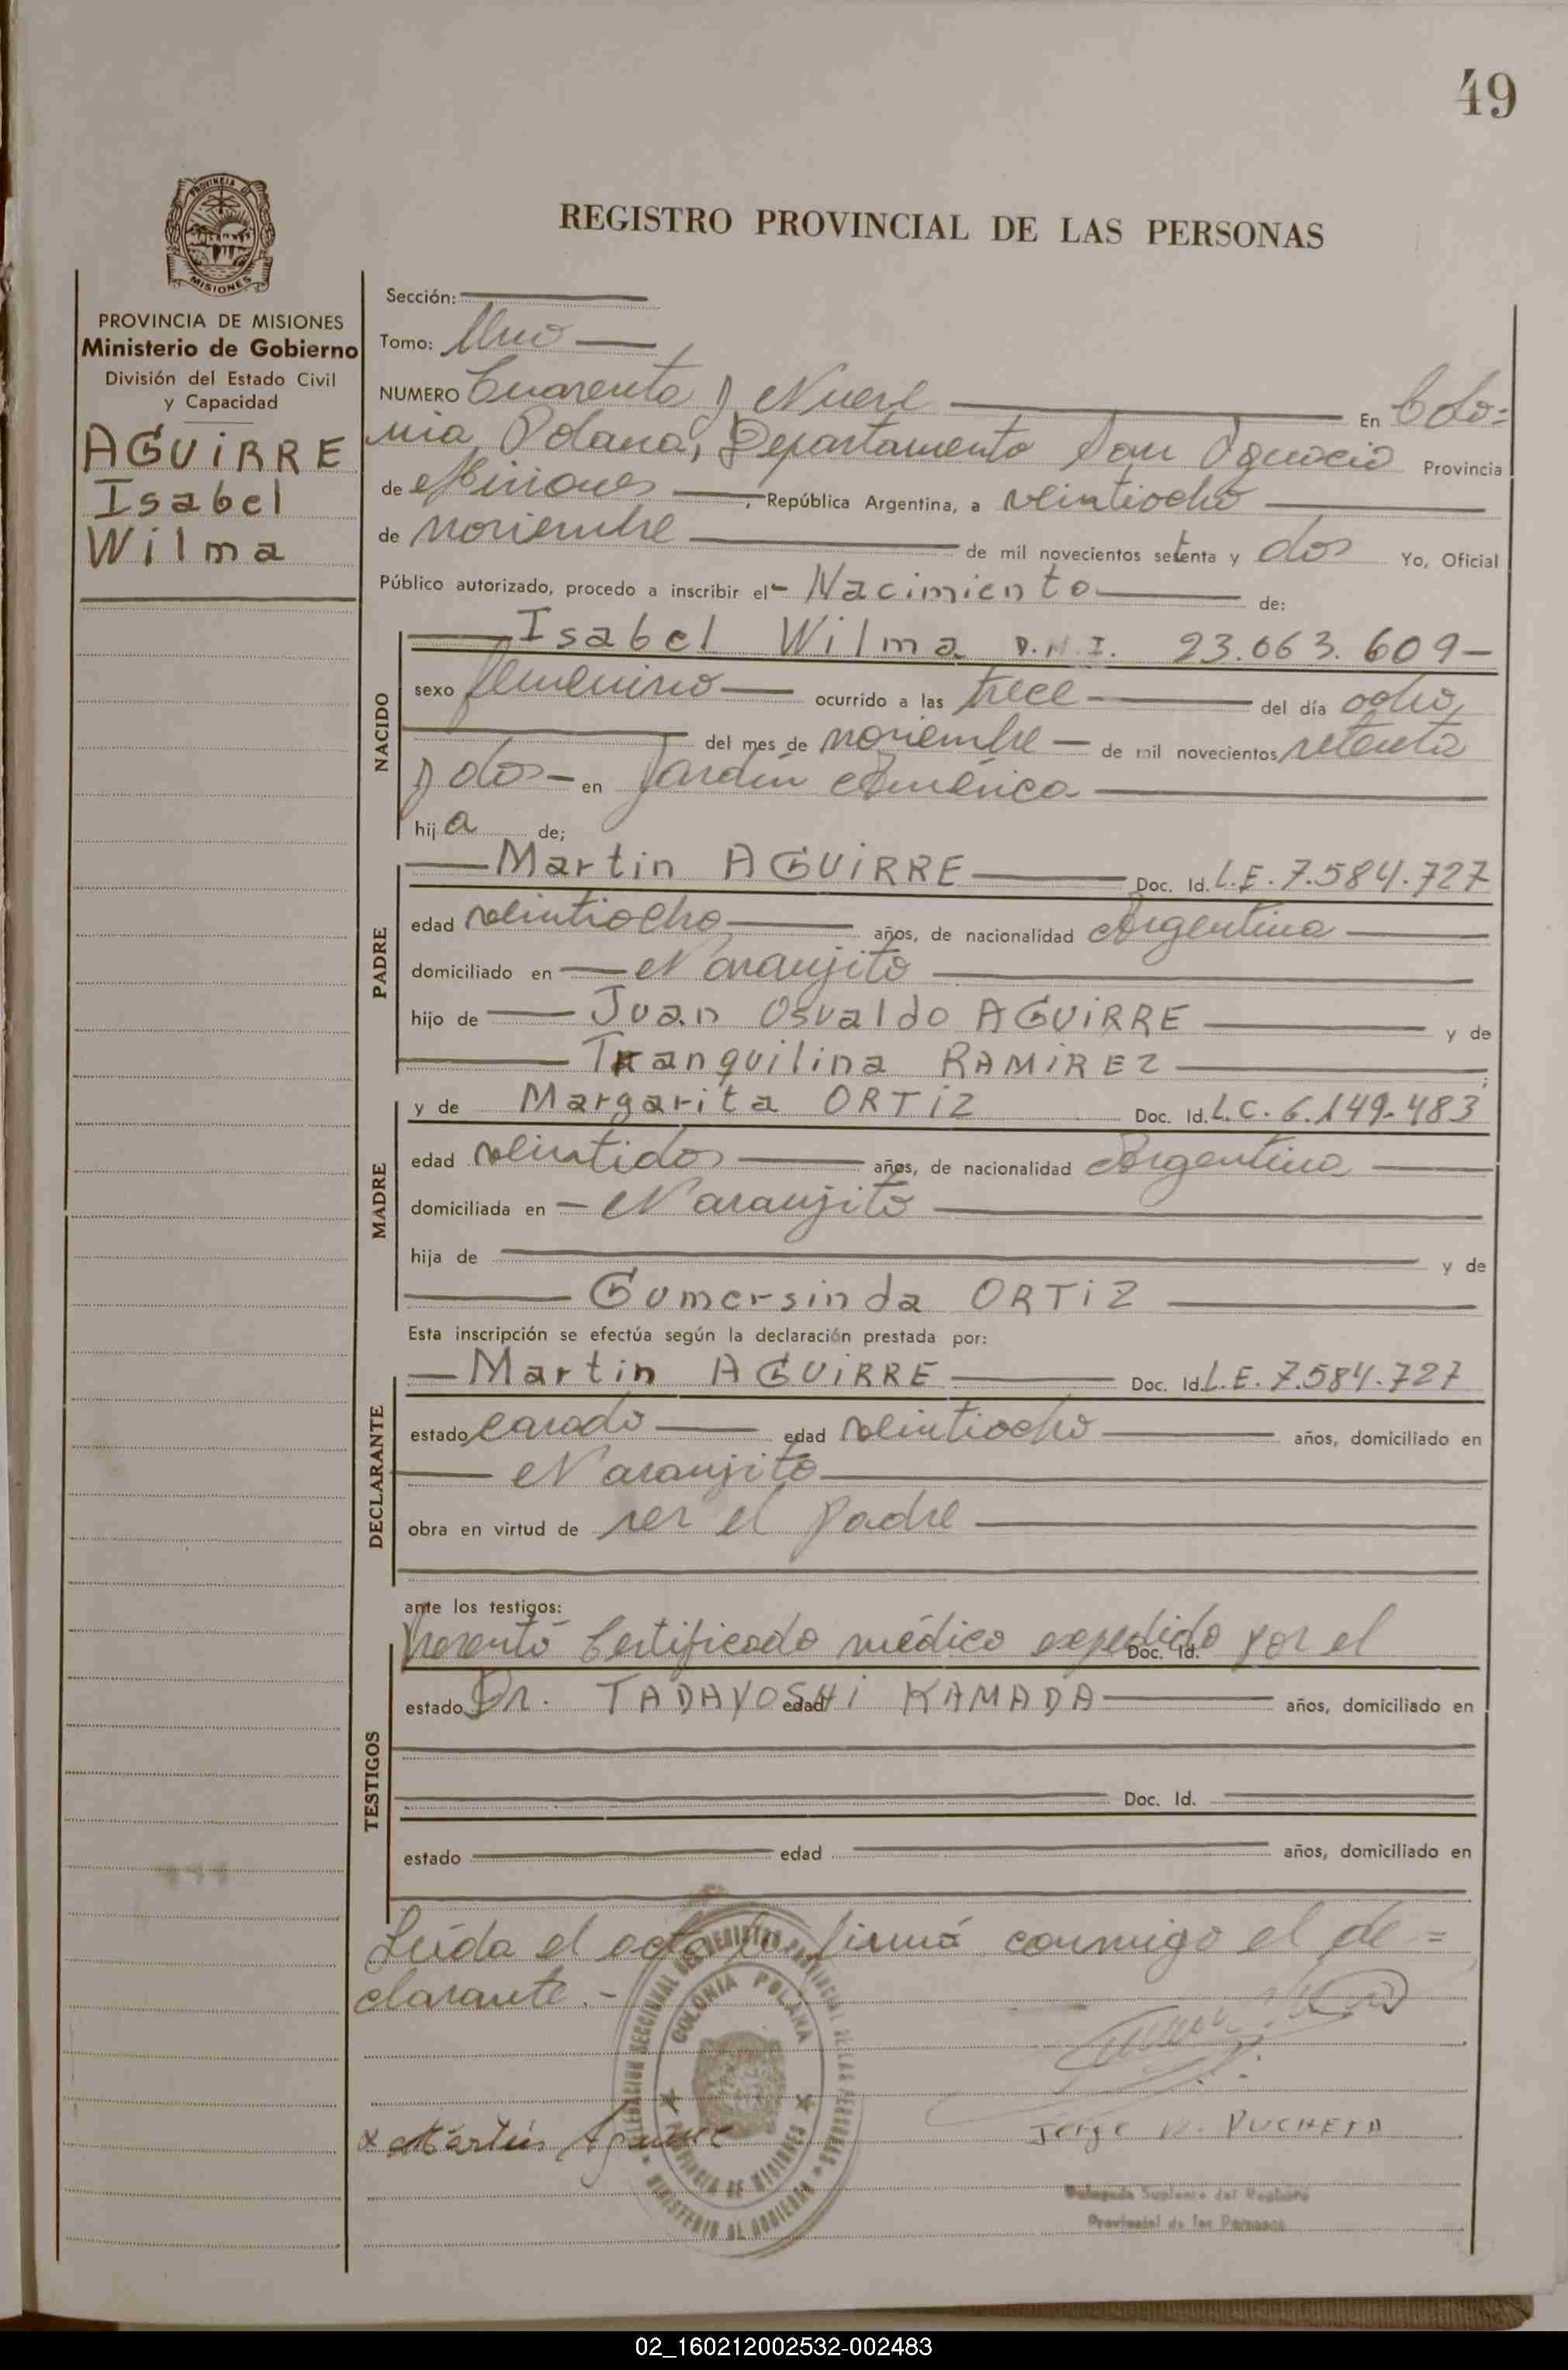 49
PROVINCIA DE
MISIONES
REGISTRO PROVINCIAL DE LAS PERSONAS
PROVINCIA DE MISIONES
Ministerio de Gobierno
División del Estado Civil
y Capacidad
AGUiRRE
Isabel
Wilma
Sección:
Tomo: Uno
NUMERO Cuarenta y Nueve En Colo=
nia Polana, Departamento San Ignacio Provincia
de Misiones, República Argentina, a veintiocho
de noviembre de mil novecientos setenta y dos Yo, Oficial
Público autorizado, procedo a inscribir el Nacimiento de:
NACIDO
Isabel Wilma D.N.I. 23.063.609-
sexo femenino ocurrido a las trece del día ocho
del mes de noviembre de mil novecientos setenta
y dos en Jardín América
hija de;
PADRE
Martin AGUiRRE Doc. Id. L.E. 7.584.727
edad veintiocho años, de nacionalidad Argentina
domiciliado en Naranjito
hijo de Juan Osvaldo AGUiRRE y de
Tranquilina RAMiREZ;
MADRE
y de Margarita ORTiZ Doc. Id. L.C. 6.149.483
edad veintidos años, de nacionalidad Argentina
domiciliada en Naranjito
hija de y de
Gumersinda ORTiZ
Esta inscripción se efectúa según la declaración prestada por:
DECLARANTE
Martin AGUiRRE Doc. Id. L.E. 7.584.727
estado casado edad veintiocho años, domiciliado en
Naranjito
obra en virtud de ser el padre
ante los testigos:
TESTIGOS
Presentó Certificado médico expedido por el Doc. Id.
estado Dr. TADAYOSHi edad KAMADA años, domiciliado en
Doc. Id.
estado edad años, domiciliado en
Leída el acta firmá conmigo el de=
clarante.-
COLONIA POLANA
PROVINCIA DE MISIONES
MINISTERIO DE GOBIERNO
x Martin Aguirre
Jorge R. PUCHETA
Delegado Suplente del Registro
Provincial de las Personas
02_160212002532-002483